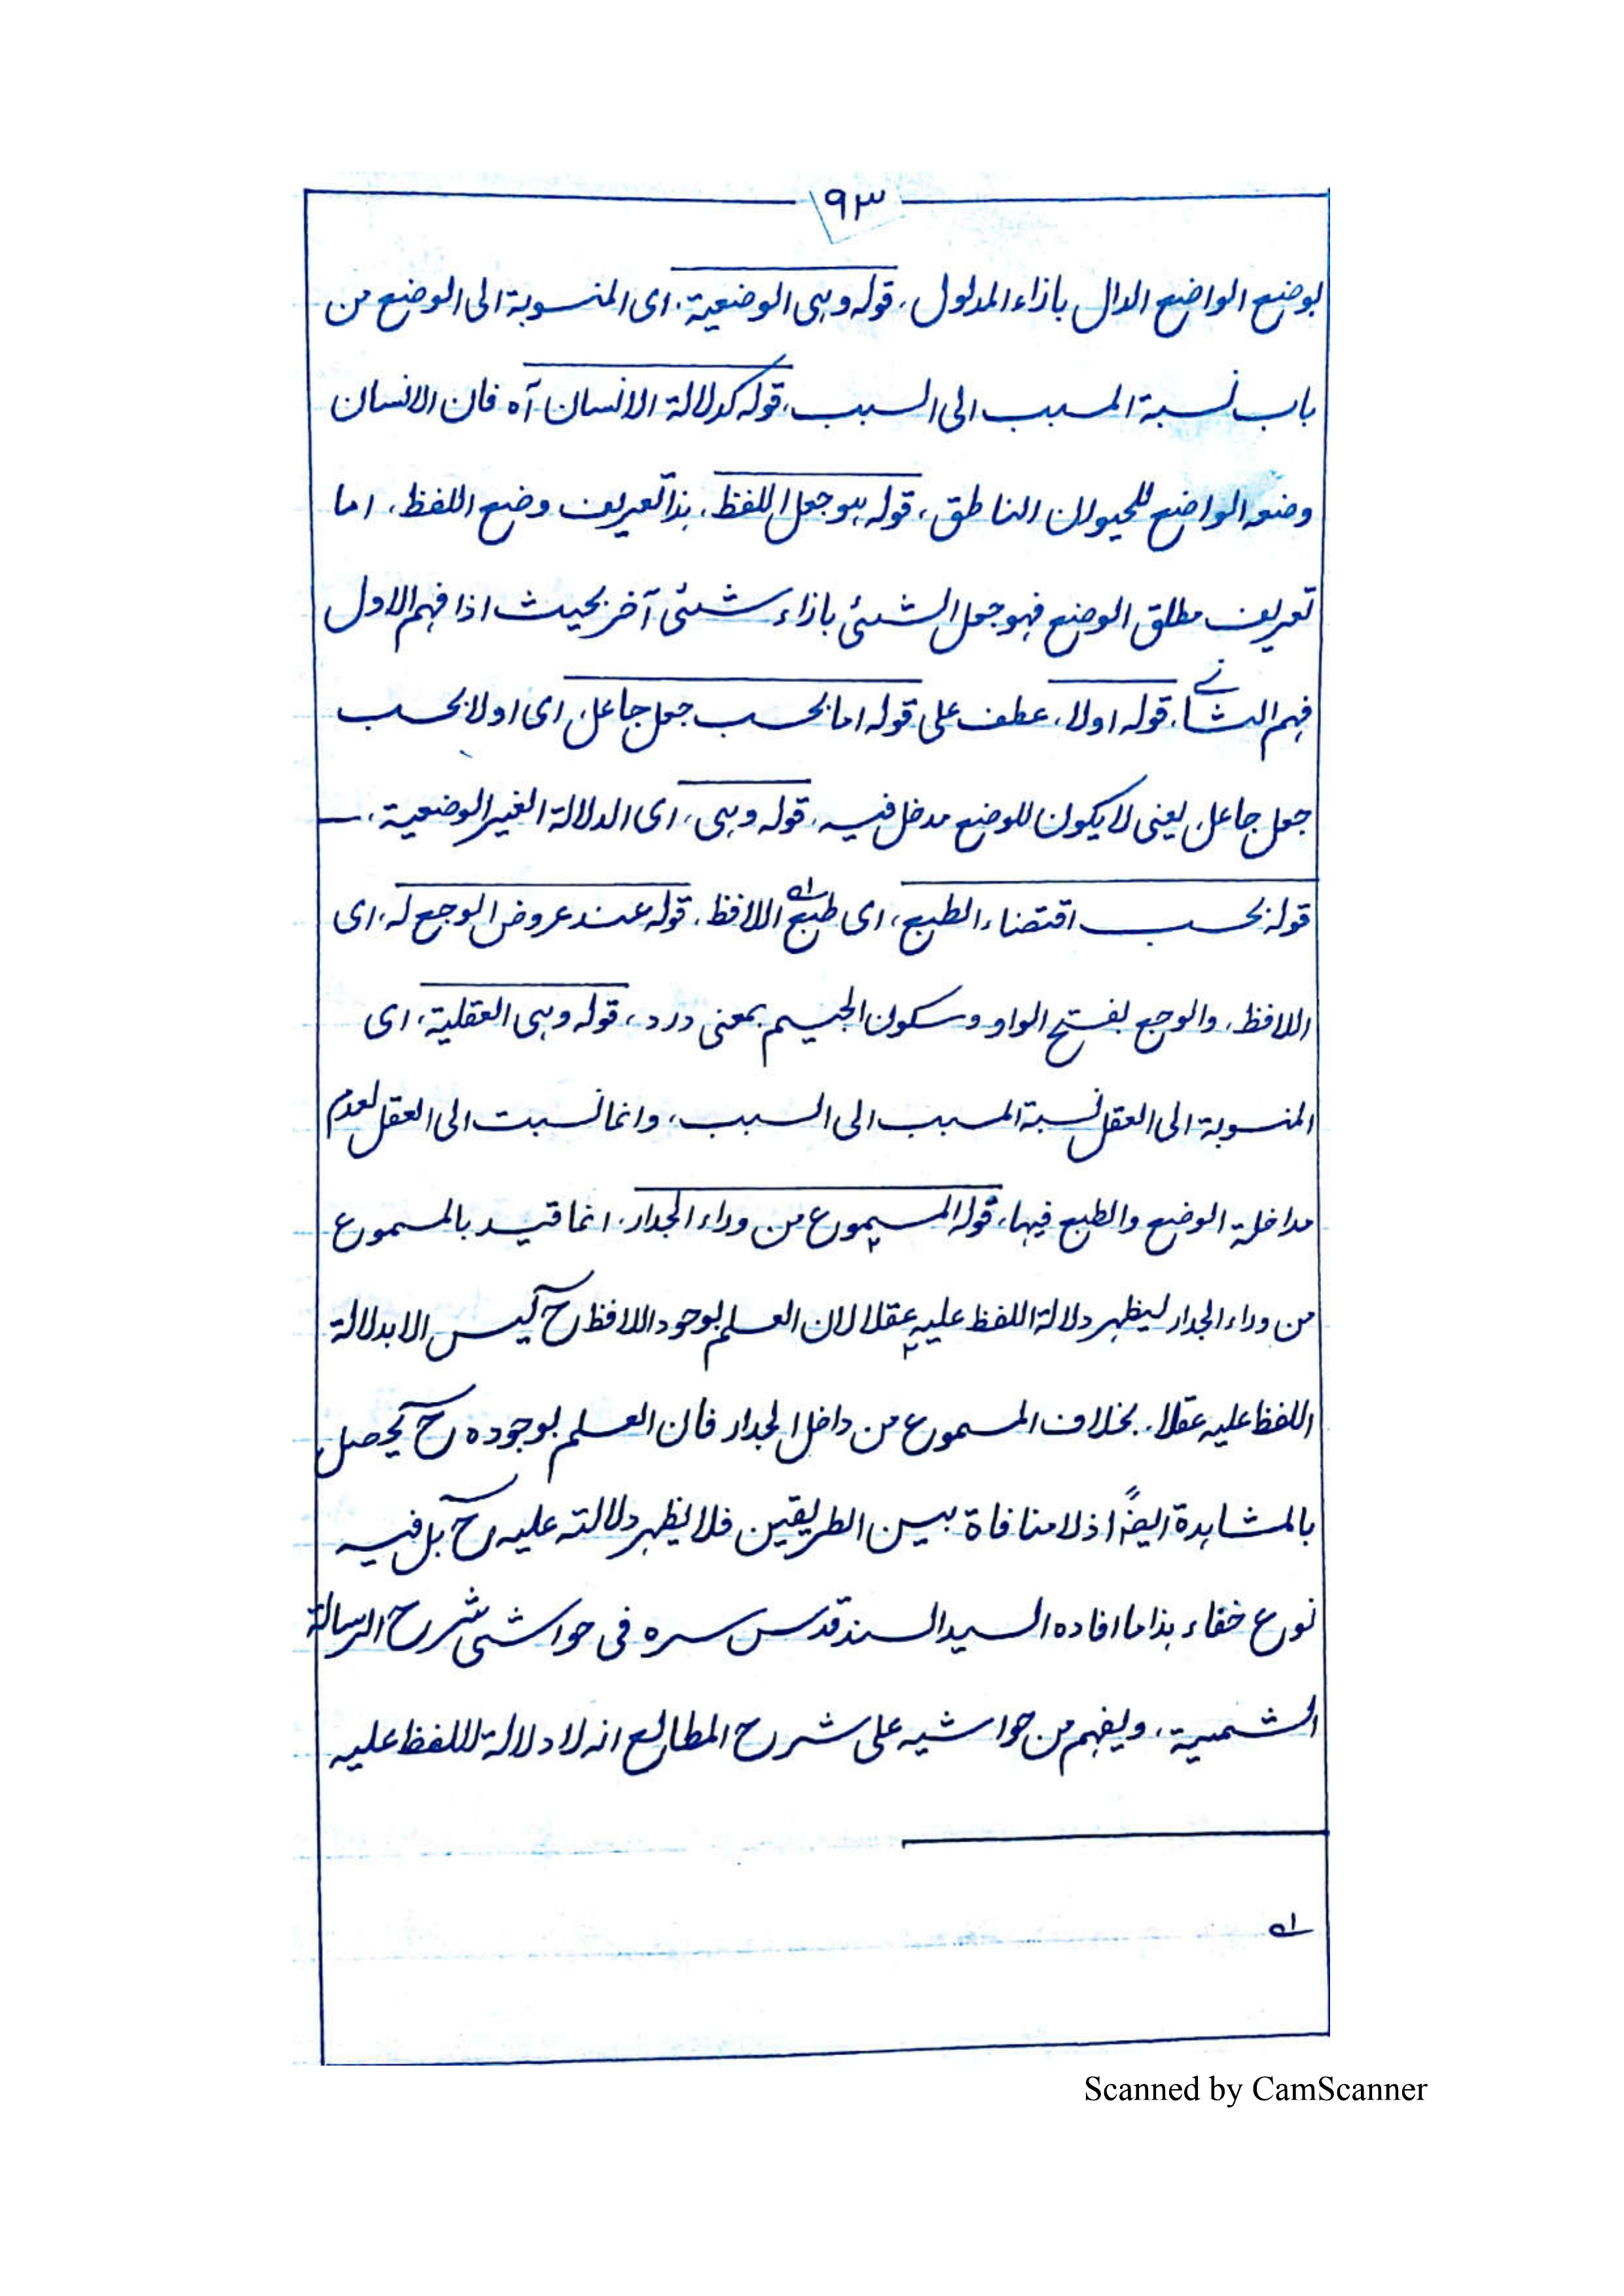 ٩٣
بوضع الواضع الدال بازاء المدلول، قوله وہی الوضعیة، ای المنسوبة الی الوضع من
باب نسبة المسبب الی السبب، قوله کدلالة الانسان آه فان الانسان
وضعه الواضع للحیوان الناطق، قوله ہو جعل اللفظ، ہذا تعریف وضع اللفظ، اما
تعریف مطلق الوضع فهو جعل الشئی بازاء شئی آخر بحیث اذا فهم الاول
فهم الثانی، قوله اولا، عطف علی قوله اما بحسب جعل جاعل، ای اولا بحسب
جعل جاعل، یعنی لا یکون للوضع مدخل فیه، قوله وہی، ای الدلالة الغیر الوضعیة،
قوله بحسب اقتضاء الطبع، ای طبع اللافظ، قوله عند عروض الوجع له، ای
اللافظ، والوجع بفتح الواو وسکون الجیم بمعنی درد، قوله وہی العقلیة، ای
المنسوبة الی العقل نسبة المسبب الی السبب، وانما نسبت الی العقل لعدم
مداخلة الوضع والطبع فیها، قوله المسموع من وراء الجدار، انما قید بالمسموع
من وراء الجدار لیظهر دلالة اللفظ علیه عقلا لان العلم بوجود اللافظ ح لیس الا بدلالة
اللفظ علیه عقلا، بخلاف المسموع من داخل الجدار فان العلم بوجوده ح یحصل
بالمشاہدة ایضاً اذ لا منافاة بین الطریقین فلا یظهر دلالته علیه ح بل فیه
نوع خفاء ہذا ما افاده السید السند قدس سره فی حواشی شرح الرسالة
الشمسیة، ویفهم من حواشیه علی شرح المطالع انه لا دلالة لللفظ علیه
Scanned by CamScanner